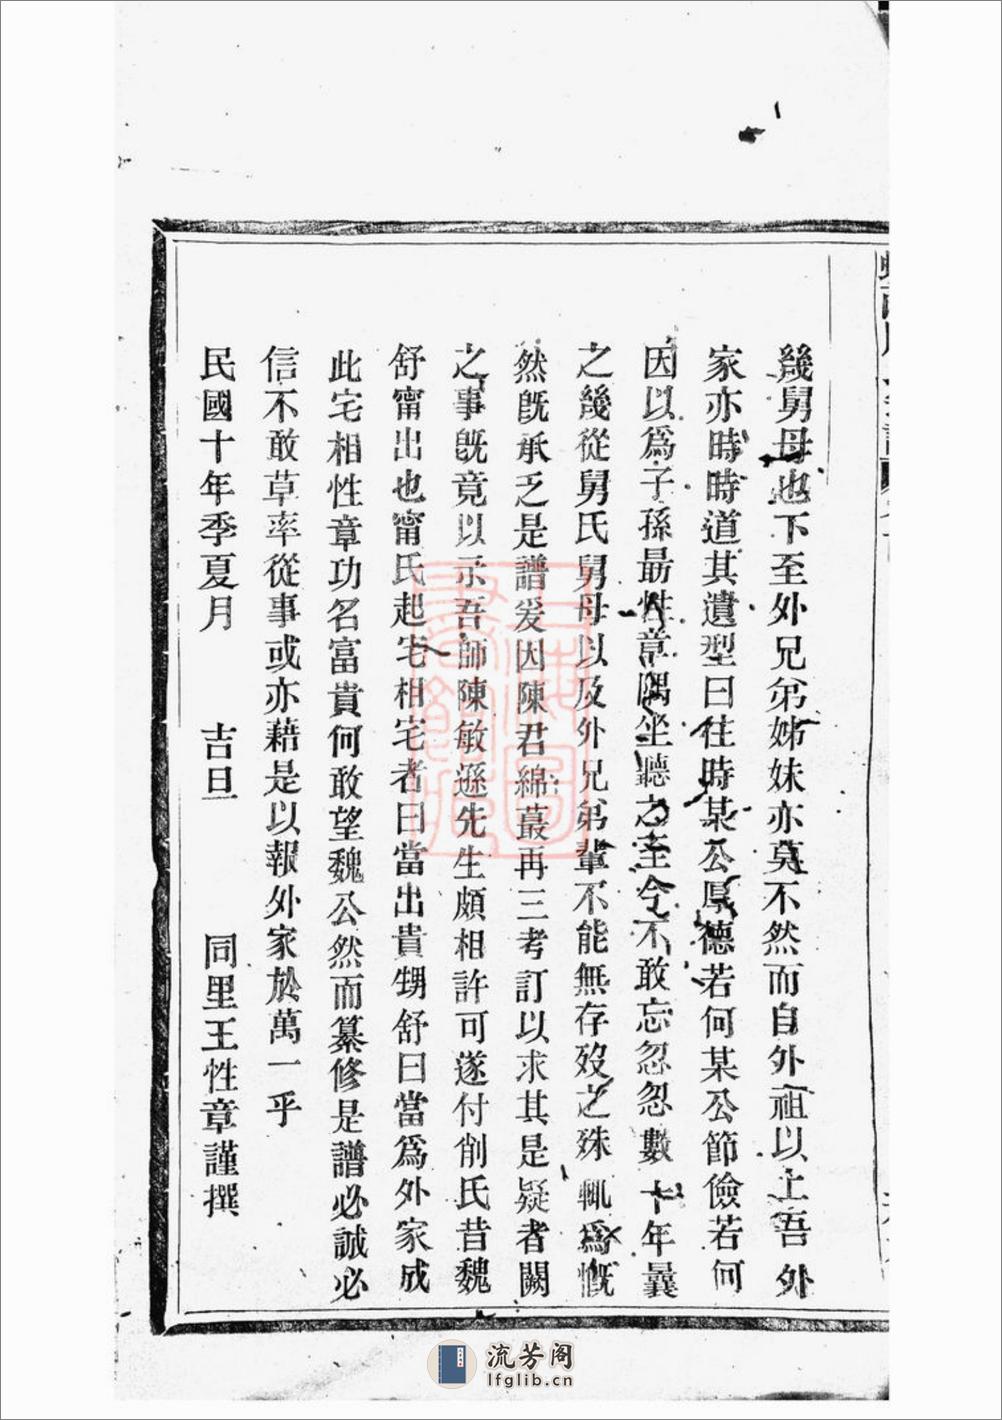 幾舅母也下至外兄弟姊妹亦莫不然而自外祖以上吾外
家亦時時道其遺型曰往時某公厚德若何某公節儉若何
因以爲子孫最性章隅坐聽之至今不敢忘忽忽數十年曩
之幾從舅氏舅母以及外兄弟輩不能無存歿之殊輒爲慨
然旣承乏是譜爰因陳君綿蕞再三考訂以求其是疑者闕
之事旣竟以示吾師陳敏遜先生頗相許可遂付削氏昔魏
舒甯出也甯氏起宅相宅者曰當出貴甥舒曰當爲外家成
此宅相性章功名富貴何敢望魏公然而纂修是譜必誠必
信不敢草率從事或亦藉是以報外家於萬一乎
民國十年季夏月 吉旦 同里王性章謹撰
流芳阁
lfglib.cn